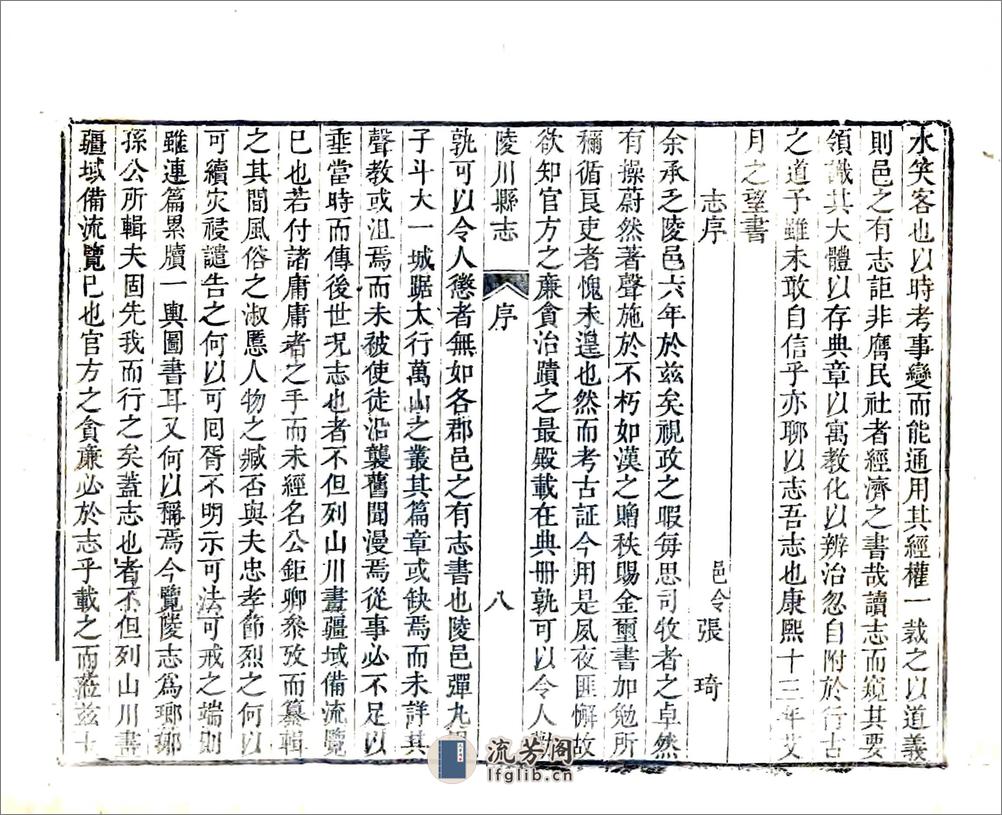 水笑客也以時考事變而能通用其經權一裁之以道義
則邑之有志詎非膺民社者經濟之書哉讀志而窺其要
領識其大體以存典章以寓教化以辨治忽自附於行古
之道予雖未敢自信乎亦聊以志吾志也康熙十三年艾
月之望書
志序 邑令張 琦
余承乏陵邑六年於茲矣視政之暇每思司牧者之卓然
有操蔚然著聲施於不朽如漢之贈秩賜金璽書加勉所
稱循良吏者愧未遑也然而考古証今用是夙夜匪懈故
欲知官方之廉貪治蹟之最殿載在典冊孰可以令人
陵川縣志 序 八
孰可以令人懲者無如各郡邑之有志書也陵邑彈九
子斗大一城踞太行萬山之叢其篇章或缺焉而未詳其
聲教或沮焉而未被使徒沿襲舊聞漫焉從事必不足以
垂當時而傳後世况志也者不但列山川畫疆域備流覽
巳也若付諸庸庸者之手而未經名公鉅卿叅攷而纂輯
之其間風俗之淑慝人物之臧否與夫忠孝節烈之何以
可續灾祲譴告之何以可囘胥不明示可法可戒之端則
雖連篇累牘一輿圖書耳又何以稱焉今覽陵志爲瑯琊
孫公所輯夫固先我而行之矣蓋志也者不但列山川書
疆域備流覽巳也官方之貪廉必於志乎載之而蒞茲土
流芳阁
lfglib.cn